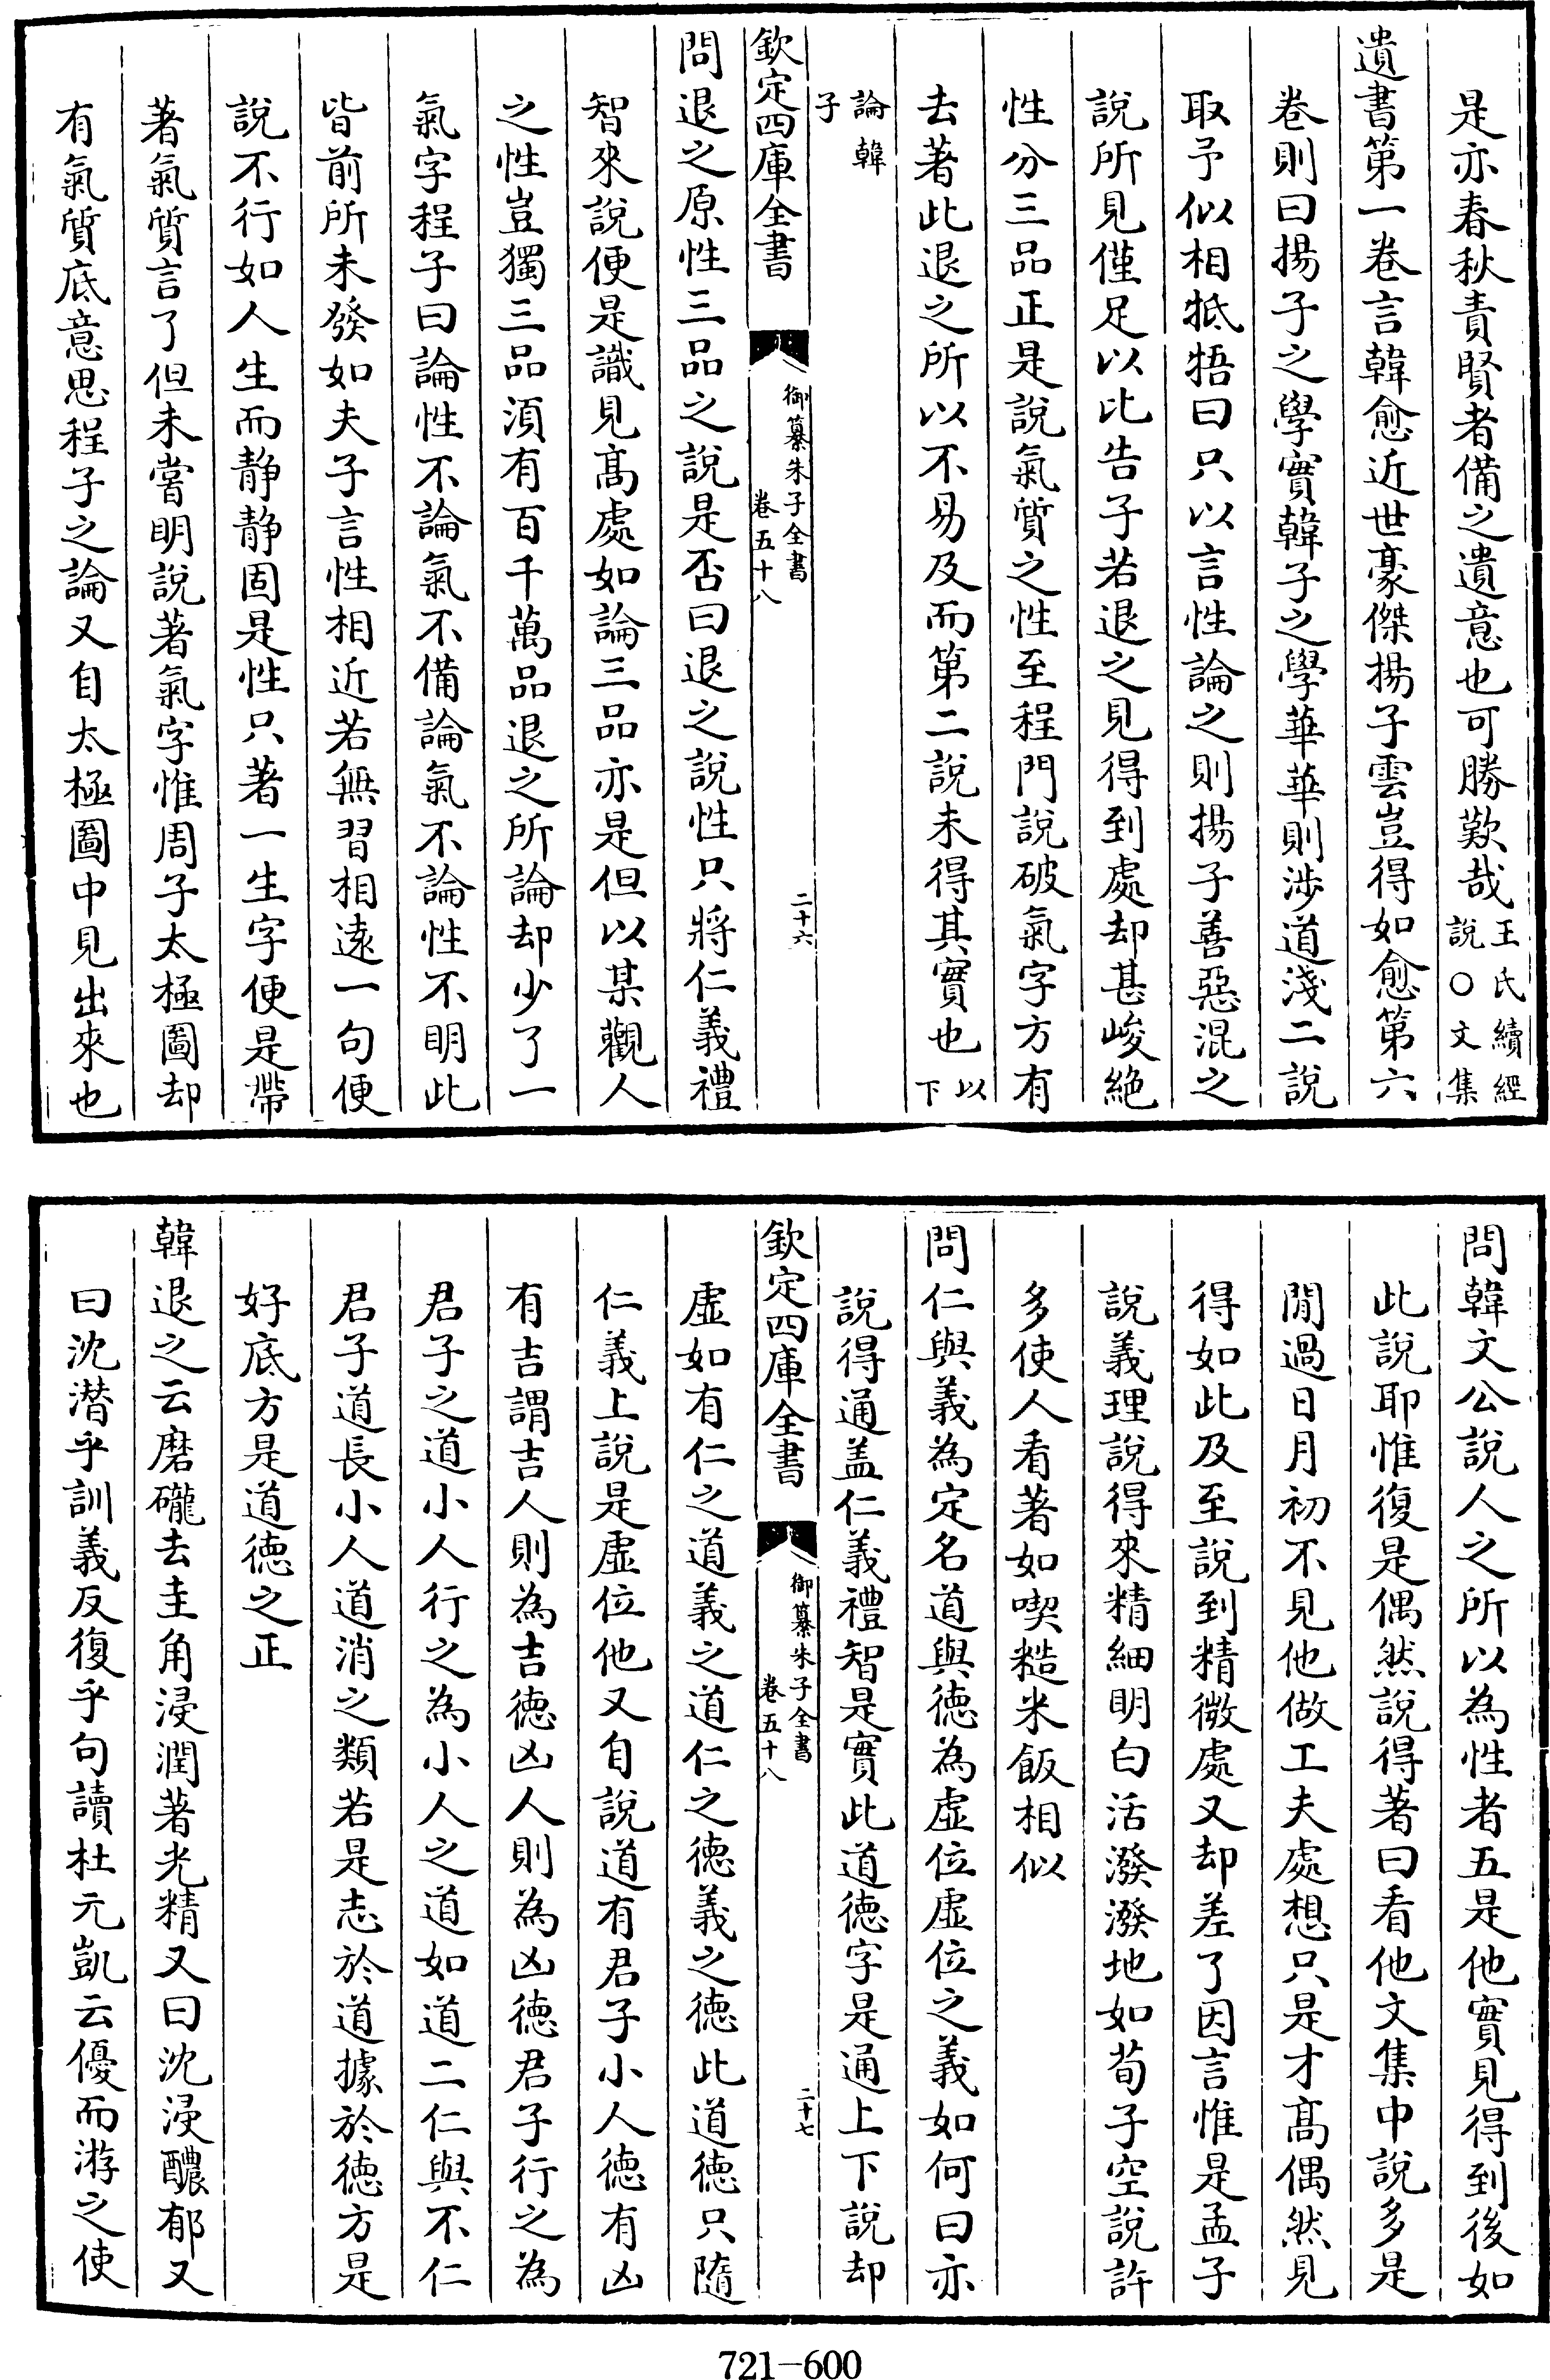 是亦春秋責賢者備之遺意也可勝歎哉王氏續經說○文集
遺書第一卷言韓愈近世豪傑揚子雲豈得如愈第六
卷則曰揚子之學實韓子之學華華則涉道淺二說
取予似相牴牾曰只以言性論之則揚子善惡混之
說所見僅足以比告子若退之見得到處却甚峻絶
性分三品正是說氣質之性至程門說破氣字方有
去著此退之所以不易及而第二說未得其實也以下
論韓子
欽定四庫全書
御纂朱子全書
卷五十八
二十六
問退之原性三品之說是否曰退之說性只將仁義禮
智來說便是識見高處如論三品亦是但以某觀人
之性豈獨三品須有百千萬品退之所論却少了一
氣字程子曰論性不論氣不備論氣不論性不明此
皆前所未發如夫子言性相近若無習相遠一句便
說不行如人生而静静固是性只著一生字便是帶
著氣質言了但未嘗明說著氣字惟周子太極圖却
有氣質底意思程子之論又自太極圖中見出來也
問韓文公說人之所以為性者五是他實見得到後如
此說耶惟復是偶然說得著曰看他文集中說多是
閒過日月初不見他做工夫處想只是才高偶然見
得如此及至說到精微處又却差了因言惟是孟子
說義理說得來精細明白活潑潑地如荀子空說許
多使人看著如喫糙米飯相似
問仁與義為定名道與徳為虛位虛位之義如何曰亦
說得通盖仁義禮智是實此道徳字是通上下說却
欽定四庫全書
御纂朱子全書
卷五十八
二十七
虛如有仁之道義之道仁之徳義之徳此道徳只隨
仁義上說是虛位他又自說道有君子小人徳有凶
有吉謂吉人則為吉徳凶人則為凶徳君子行之為
君子之道小人行之為小人之道如道二仁與不仁
君子道長小人道消之類若是志於道據於徳方是
好底方是道徳之正
韓退之云磨礲去圭角浸潤著光精又曰沈浸醲郁又
曰沈潛乎訓義反復乎句讀杜元凱云優而游之使
721-600